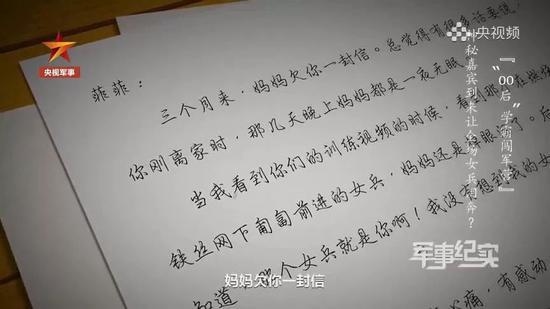 央视军事
央视频
菲菲：
三个月来，妈妈欠你一封信。总觉得有很多话要说，
你刚离家时，那几天晚上妈妈都是一夜无眠
当我看到你们的训练视频的时候，看到那
铁丝网下匍匐前进的女兵，妈妈还是
知道 个女兵就是你啊！我没有想到我的女
心痛，有感动
『“00后”学霸闯军营』
秘嘉宾到来让 场女兵 奔？
军事纪实
妈妈欠你一封信